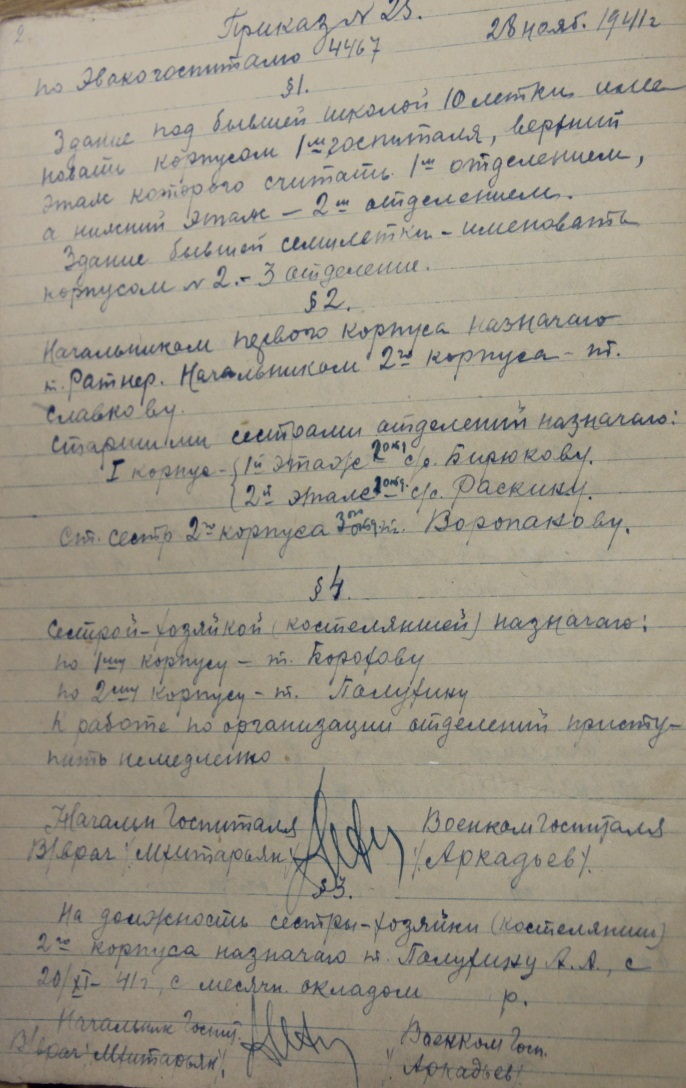 2
Приказ N 23.
28 нояб. 1941г
по Эвакогоспиталю 4467
§1.
Здание под бывшей школой 10 летки име-
новать корпусом 1ым госпиталя, верхний
этаж которого считать 1ым отделением,
а нижний этаж – 2ым отделением.
Здание бывшей семилетки – именовать
корпусом N 2. – 3 отделение.
§2.
Начальником первого корпуса назначаю
т. Ратнер. Начальником 2го корпуса – т.
Славкову.
Старшими сестрами отделений назначаю:
I корпус – { 1й этаж 2 отд. с/с. Бирюкову.
{ 2й этаж отд. с/с. Раскину.
Ст. сестр 2го корпуса 3 т. Воропанову.
§4.
Сестрой-хозяйкой (костеляншей) назначаю:
по 1му корпусу – т. Борохову
по 2му корпусу – т. Полухину
К работе по организации отделений присту-
пить немедленно
Начальн Госпиталя
В/врач /Мхитарьян/
Военком Госпиталя
/Аркадьев/.
§3.
На должность сестры-хозяйки (костелянши)
2го корпуса назначаю т. Полухину А.А., с
20/XI – 41г, с месячн. окладом р.
Начальник Госпит.
В/врач /Мхитарьян/.
Военком Госп.
/Аркадьев/